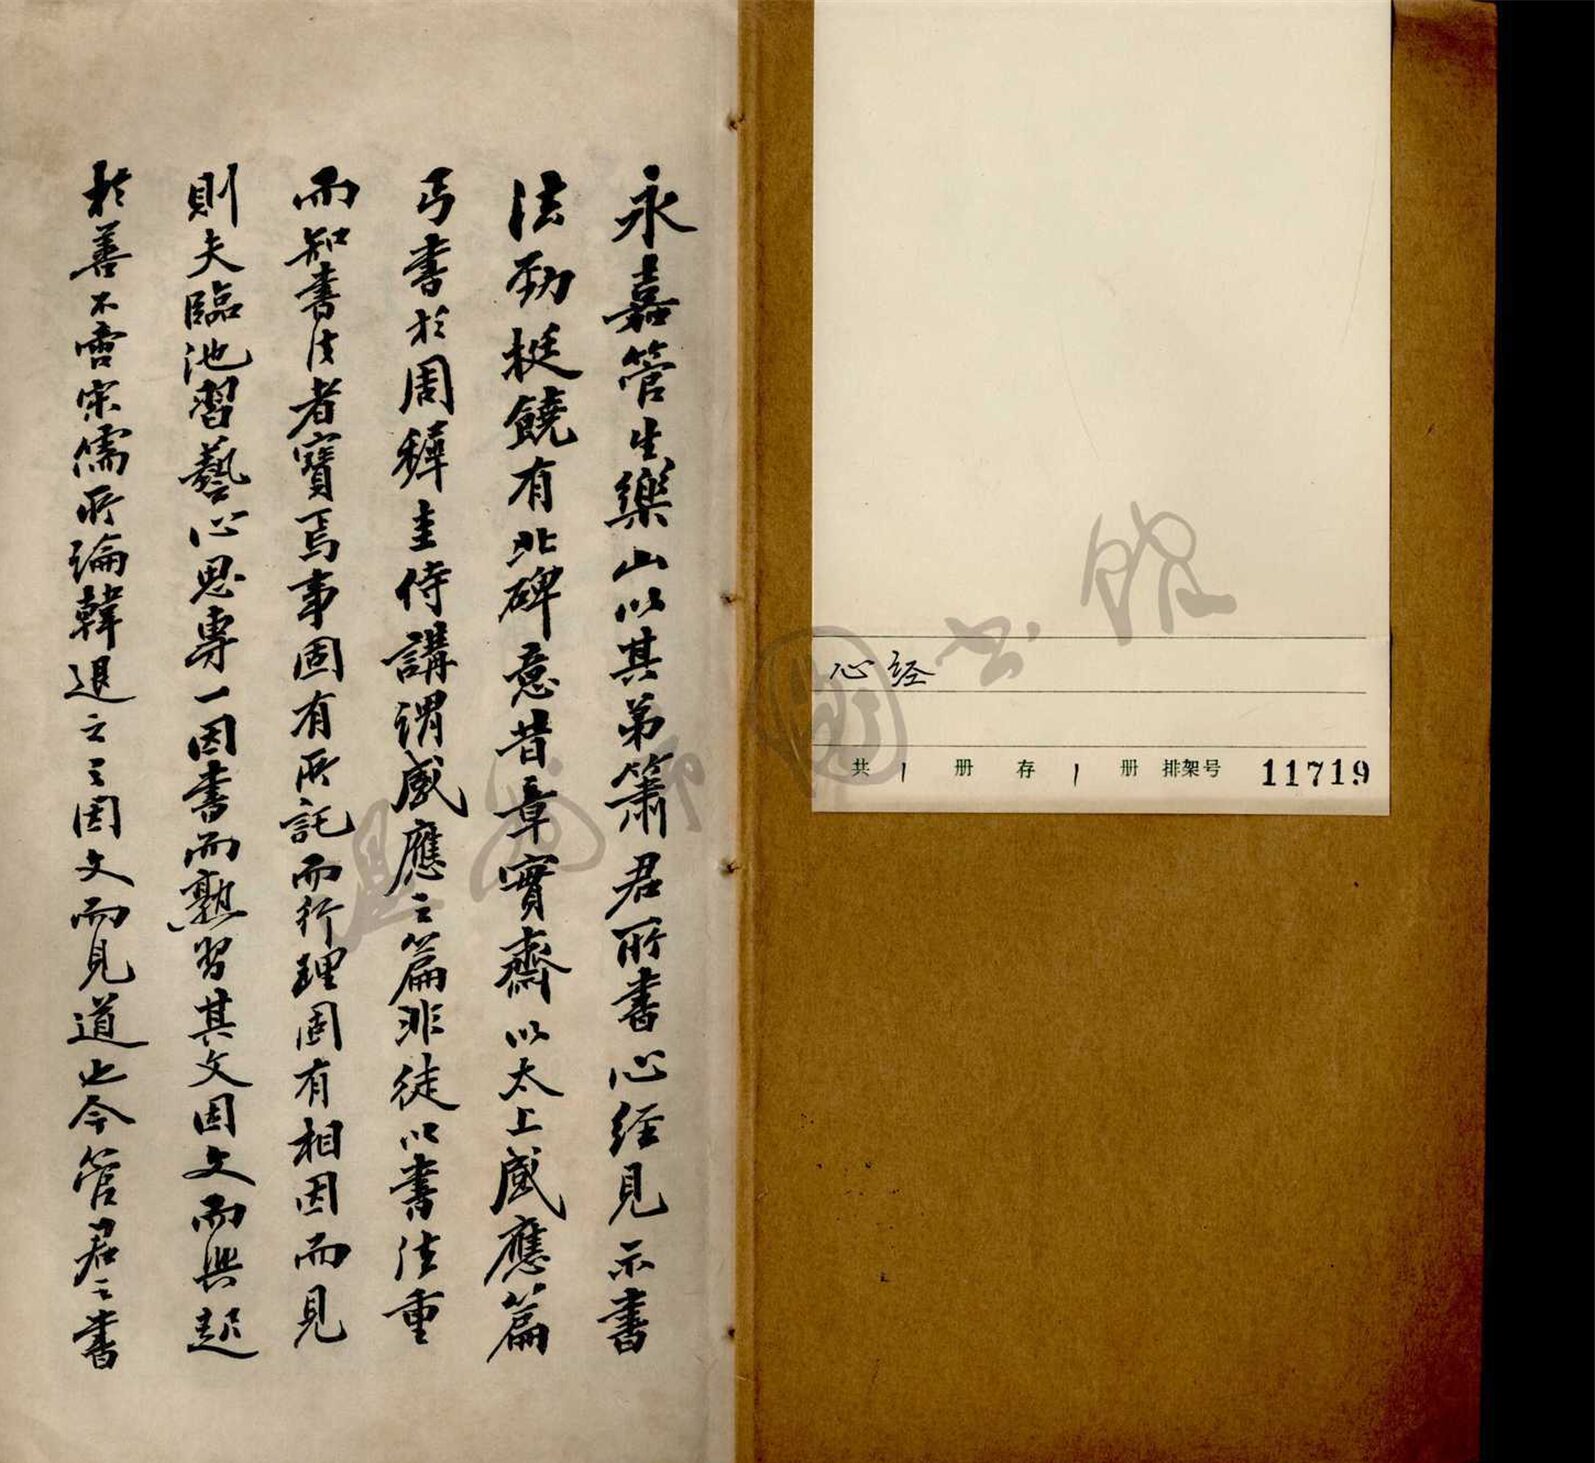 心经
共 1 册 存 1 册 排架号 11719
永嘉管生樂山以其弟簫君所書心經見示書
法勁挺饒有北碑意昔章實齋以太上感應篇
丐書於周穉圭侍講謂感應之篇非徒以書法重
而知書法者寶焉事固有所託而行理固有相因而見
則夫臨池習藝心思專一因書而熟習其文因文而興起
於善不啻宋儒所論韓退之之因文而見道也今管君之書